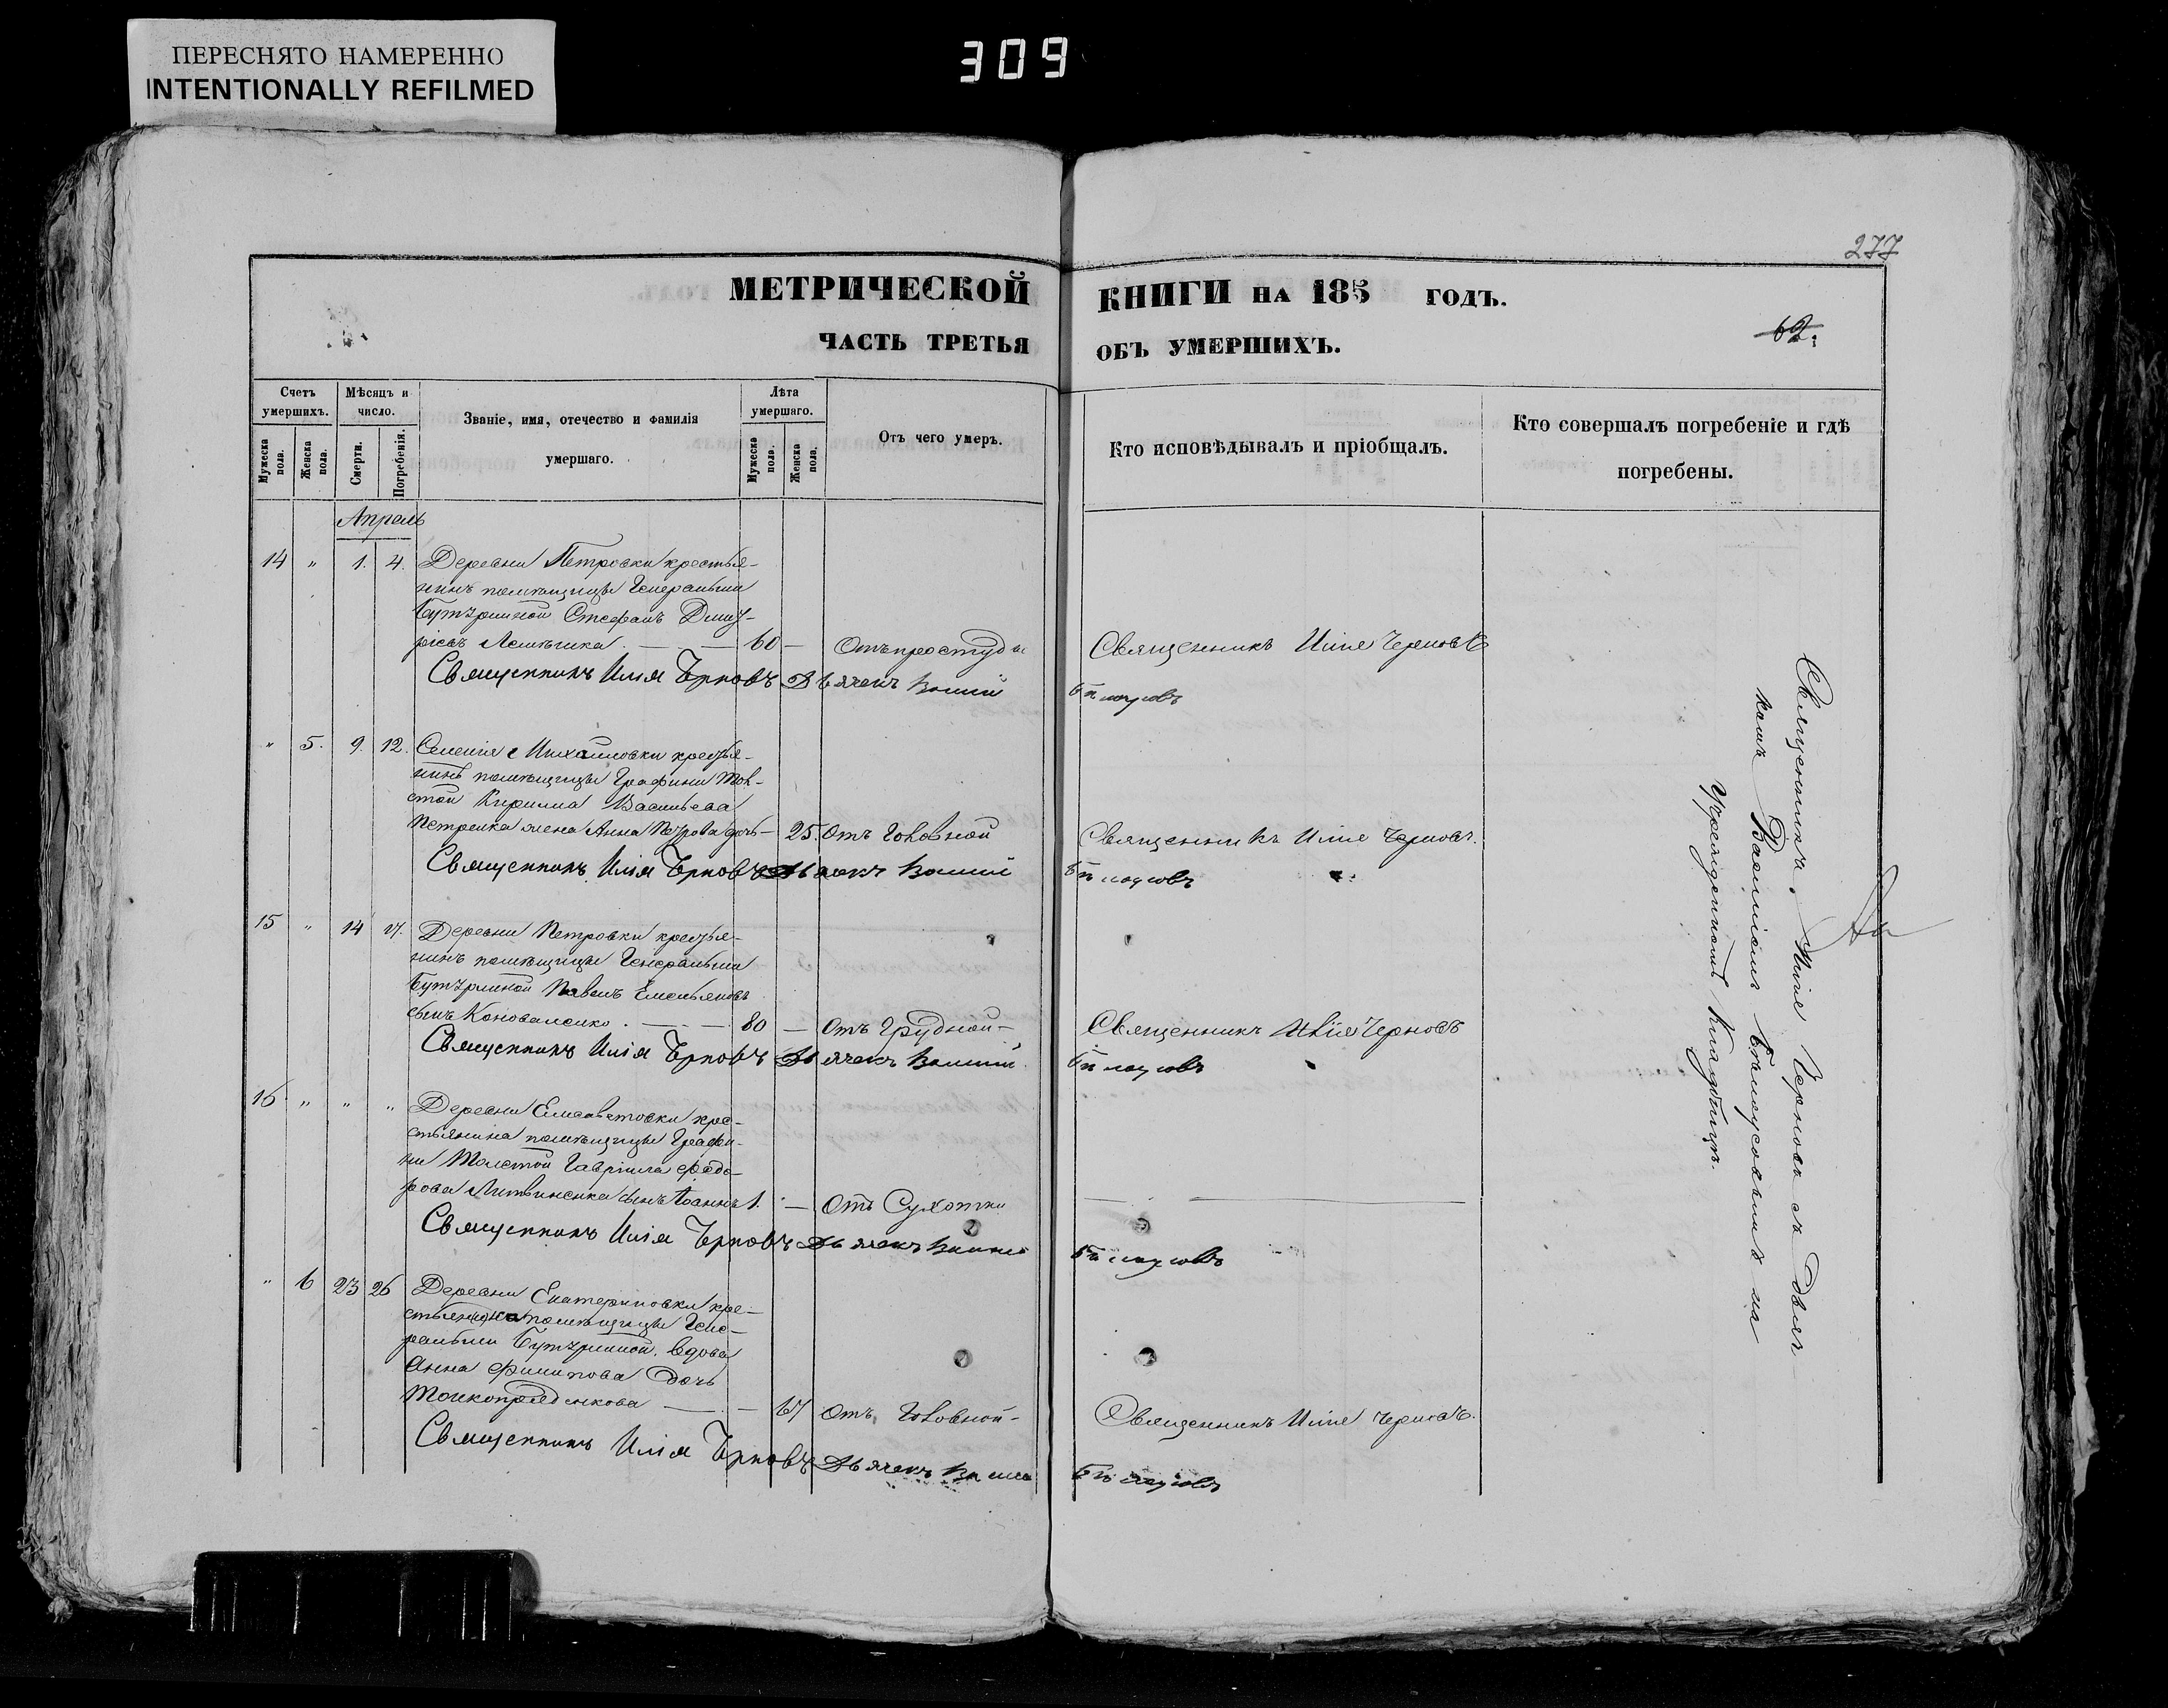 ПЕРЕСНЯТО НАМЕРЕННО
INTENTIONALLY REFILMED
309
277
МЕТРИЧЕСКОЙ КНИГИ НА 185 ГОДЪ.
ЧАСТЬ ТРЕТЬЯ ОБЪ УМЕРШИХЪ.
62.
Счетъ умершихъ.
Мужеска пола.
Женска пола.
Мѣсяцъ и число.
Смерти.
Погребенія.
Званіе, имя, отечество и фамилія
умершаго.
Лѣта умершаго.
Мужеска пола.
Женска пола.
Отъ чего умеръ.
Кто исповѣдывалъ и пріобщалъ.
Кто совершалъ погребеніе и гдѣ
погребены.
Апрель
14 " 1. 4. Деревни Петровки крестья-
нинъ помѣщицы Генеральши
Бутурлиной Стефанъ
60 — Отъ простуды Священникъ Илія Черновъ
Священникъ Илія Черновъ Дьячекъ Василій Бѣлоусовъ
" 5. 9. 12. Селенія Михайловки кресья-
нинъ помѣщицы Графини Тол-
стой Кирилла Васильева
Петренка жена Анна Петрова дочь — 25. Отъ Головной Священникъ Илія Черновъ.
Священникъ Илія Черновъ Дьячекъ Василій Бѣлоусовъ
15 " 14 17. Деревни Петровки кресья-
нинъ помѣщицы Генеральши
Бутурлиной Павелъ Емельяновъ
сынъ Коноваленко. — 80 — Отъ Грудной — Священникъ Илія Черновъ
Священникъ Илія Черновъ Дьячекъ Василій Бѣлоусовъ
16. " " " Деревни Елисаветовки кре-
стьянина помѣщицы Графи-
ни Толстой Гавріила Федо-
рова Литвиненка сынъ Іоаннъ 1. — Отъ Сухотки
Священникъ Илія Черновъ Дьячекъ Василій Бѣлоусовъ
" 6 23 26 Деревни Екатериновки кре-
стьянка помѣщицы Гене-
ральши Бутурлиной. Вдова
Анна Филипова Дочь
— 67 Отъ Головной — Священникъ Илія Черновъ.
Священникъ Илія Черновъ Дьячекъ Василій Бѣлоусовъ
Священникъ Илія Черновъ съ Дьяч-
комъ Василіемъ Бѣлоусовымъ на
Учрежденномъ Кладбищѣ.